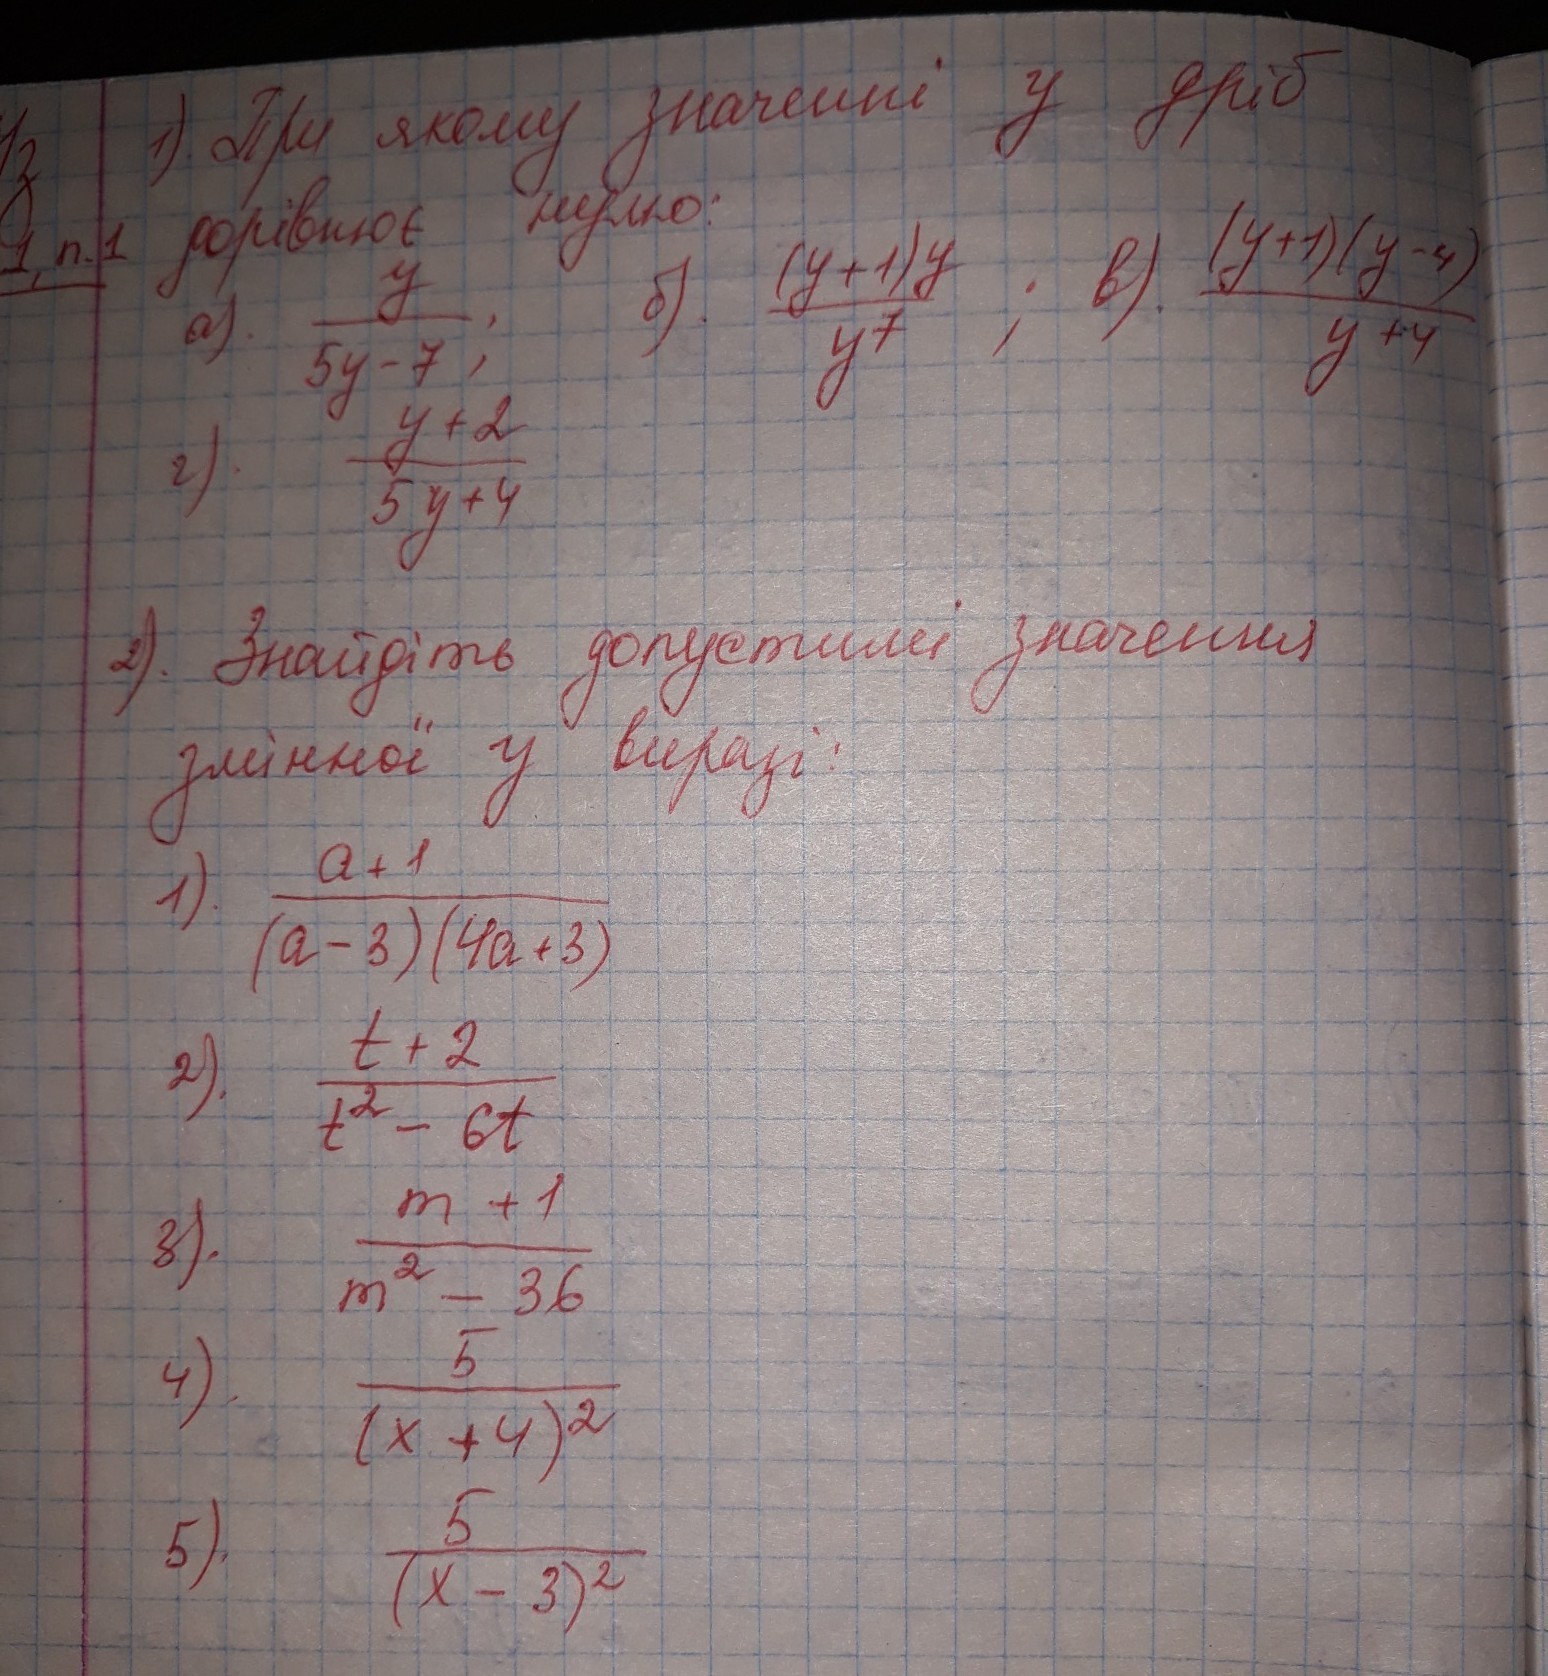 1). При якому значенні y дріб
1, п.1 дорівнює нулю:
а). y/(5y-7); б). (y+1)y/y⁷; в). (y+1)(y-4)/(y+4)
г). (y+2)/(5y+4)
2). Знайдіть допустимі значення
змінної у виразі:
1). (a+1)/((a-3)(4a+3))
2). (t+2)/(t²-6t)
3). (m+1)/(m²-36)
4). 5/(x+4)²
5). 5/(x-3)²